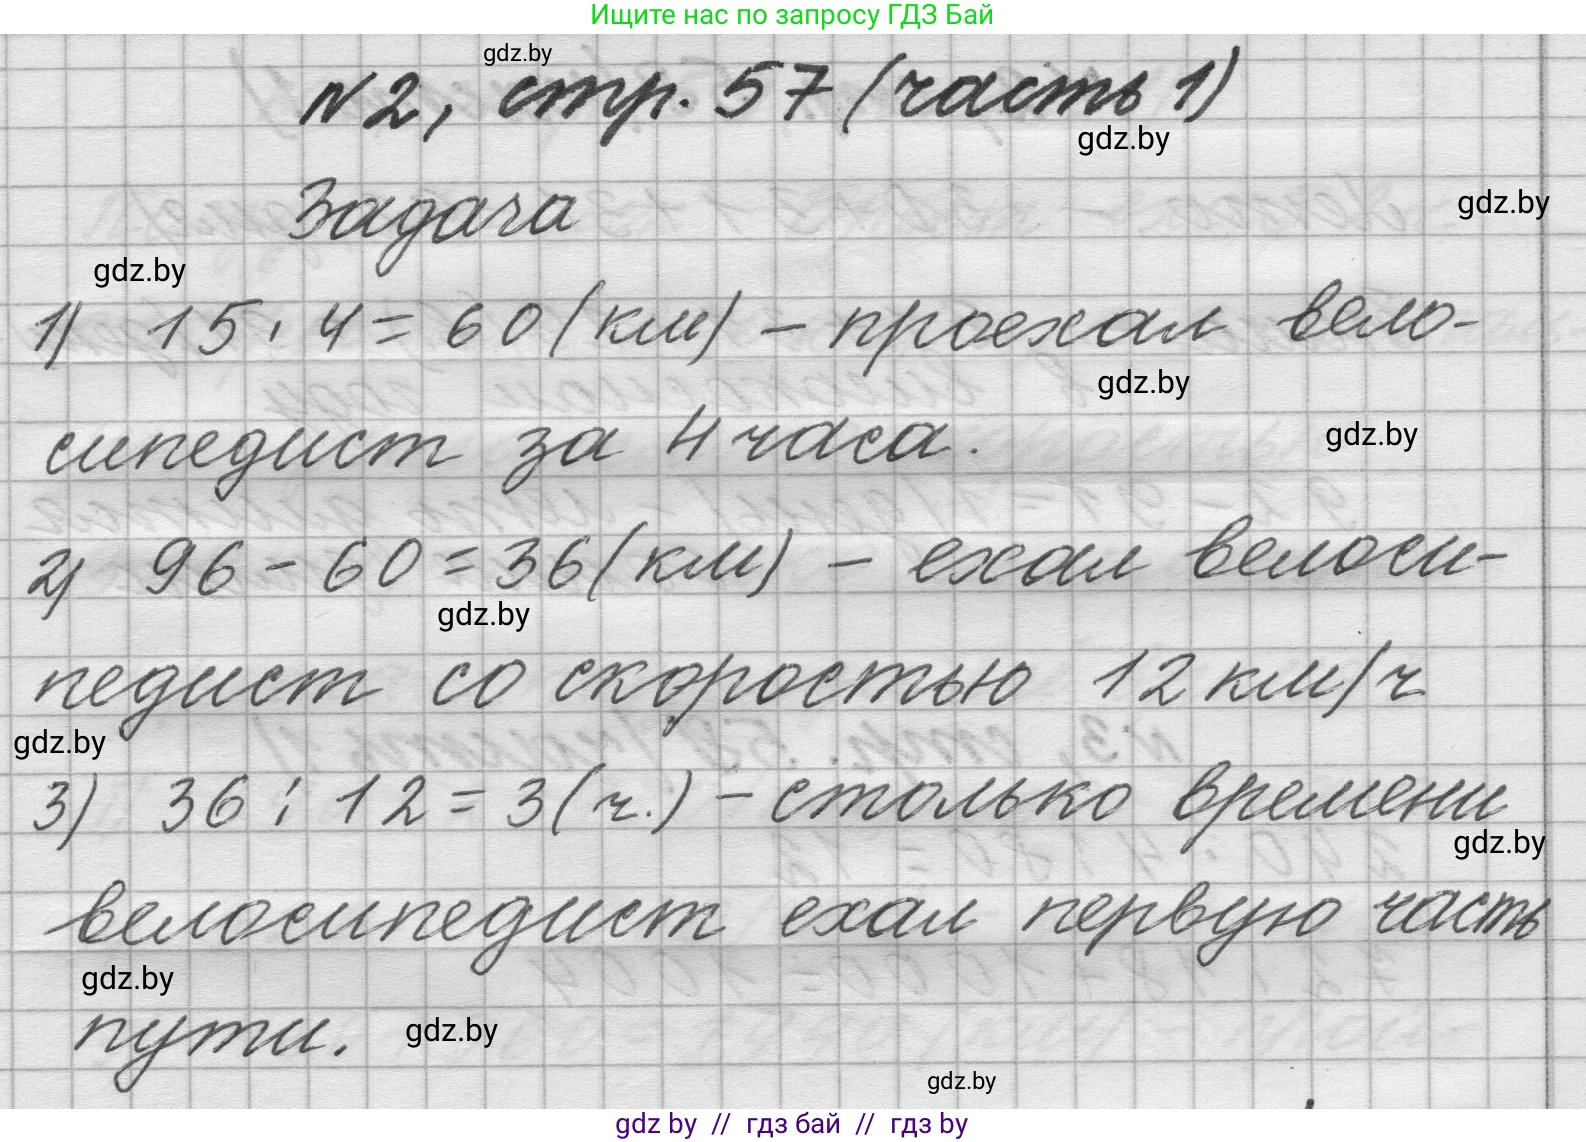 Ищите нас по запросу ГДЗ Бай
gdz.by
№2, стр. 57 (часть 1)
gdz.by
Задача
gdz.by
gdz.by
1) 15 · 4 = 60 (км) – проехал вело-
gdz.by
сипедист за 4 часа.
gdz.by
2) 96 - 60 = 36 (км) – ехал велоси-
gdz.by
педист со скоростью 12 км/ч
gdz.by
3) 36 : 12 = 3 (ч.) – столько времени
gdz.by
велосипедист ехал первую часть
gdz.by
пути.
gdz.by
gdz.by
gdz by // гдз бай // гдз by